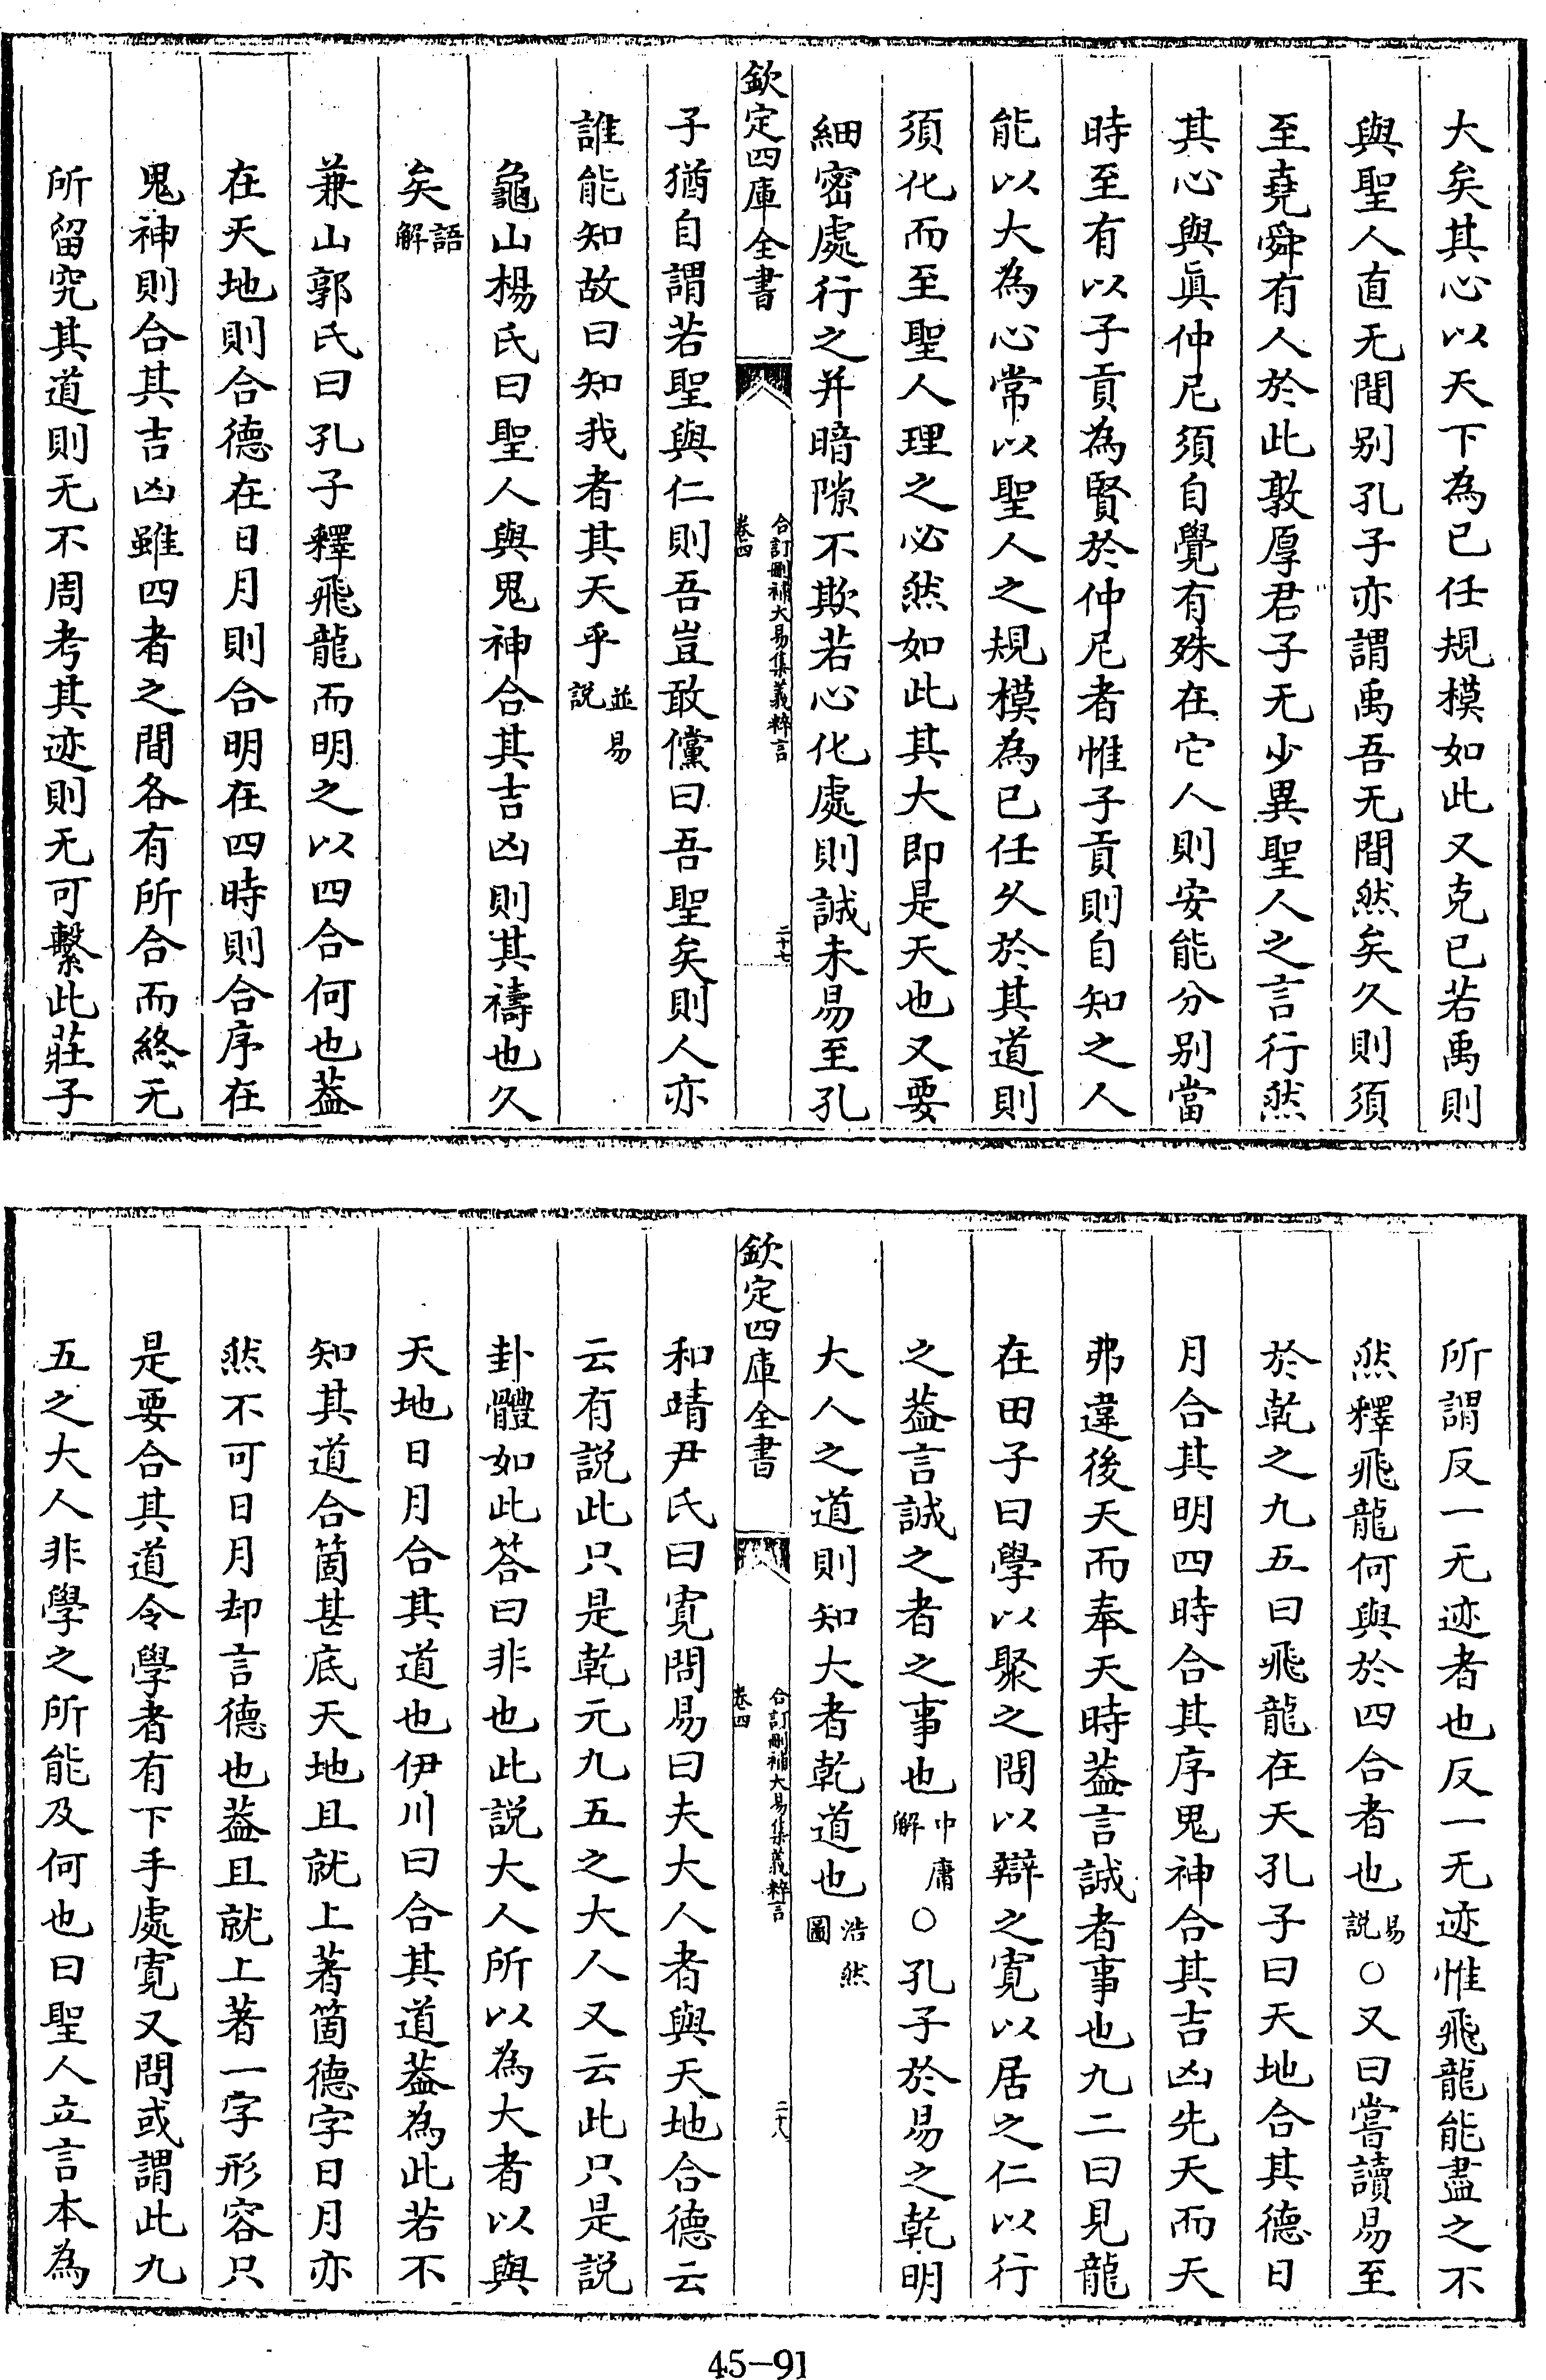 大矣其心以天下為已任規模如此又克已若禹則
與聖人直无間别孔子亦謂禹吾无間然矣久則須
至堯舜有人於此敦厚君子无少異聖人之言行然
其心與眞仲尼須自覺有殊在它人則安能分别當
時至有以子貢為賢於仲尼者惟子貢則自知之人
能以大為心常以聖人之規模為已任久於其道則
須化而至聖人理之必然如此其大即是天也又要
細密處行之并暗隙不欺若心化處則誠未易至孔
欽定四庫全書
合訂刪補大易集義粹言
卷四
二十七
子猶自謂若聖與仁則吾豈敢儻曰吾聖矣則人亦
誰能知故曰知我者其天乎並易
說
龜山楊氏曰聖人與鬼神合其吉凶則其禱也久
矣語
解
兼山郭氏曰孔子釋飛龍而明之以四合何也蓋
在天地則合德在日月則合明在四時則合序在
鬼神則合其吉凶雖四者之間各有所合而終无
所留究其道則无不周考其迹則无可繫此莊子
所謂反一无迹者也反一无迹惟飛龍能盡之不
然釋飛龍何與於四合者也易
說○又曰嘗讀易至
於乾之九五曰飛龍在天孔子曰天地合其德日
月合其明四時合其序鬼神合其吉凶先天而天
弗違後天而奉天時蓋言誠者事也九二曰見龍
在田子曰學以聚之問以辯之寬以居之仁以行
之蓋言誠之者之事也中庸
解○孔子於易之乾明
大人之道則知大者乾道也浩然
圖
欽定四庫全書
合訂刪補大易集義粹言
卷四
二十八
和靖尹氏曰寛問易曰夫大人者與天地合德云
云有説此只是乾元九五之大人又云此只是説
卦體如此答曰非也此説大人所以為大者以與
天地日月合其道也伊川曰合其道蓋為此若不
知其道合箇甚底天地且就上著箇德字日月亦
然不可日月却言德也蓋且就上著一字形容只
是要合其道令學者有下手處寛又問或謂此九
五之大人非學之所能及何也曰聖人立言本為
45-91